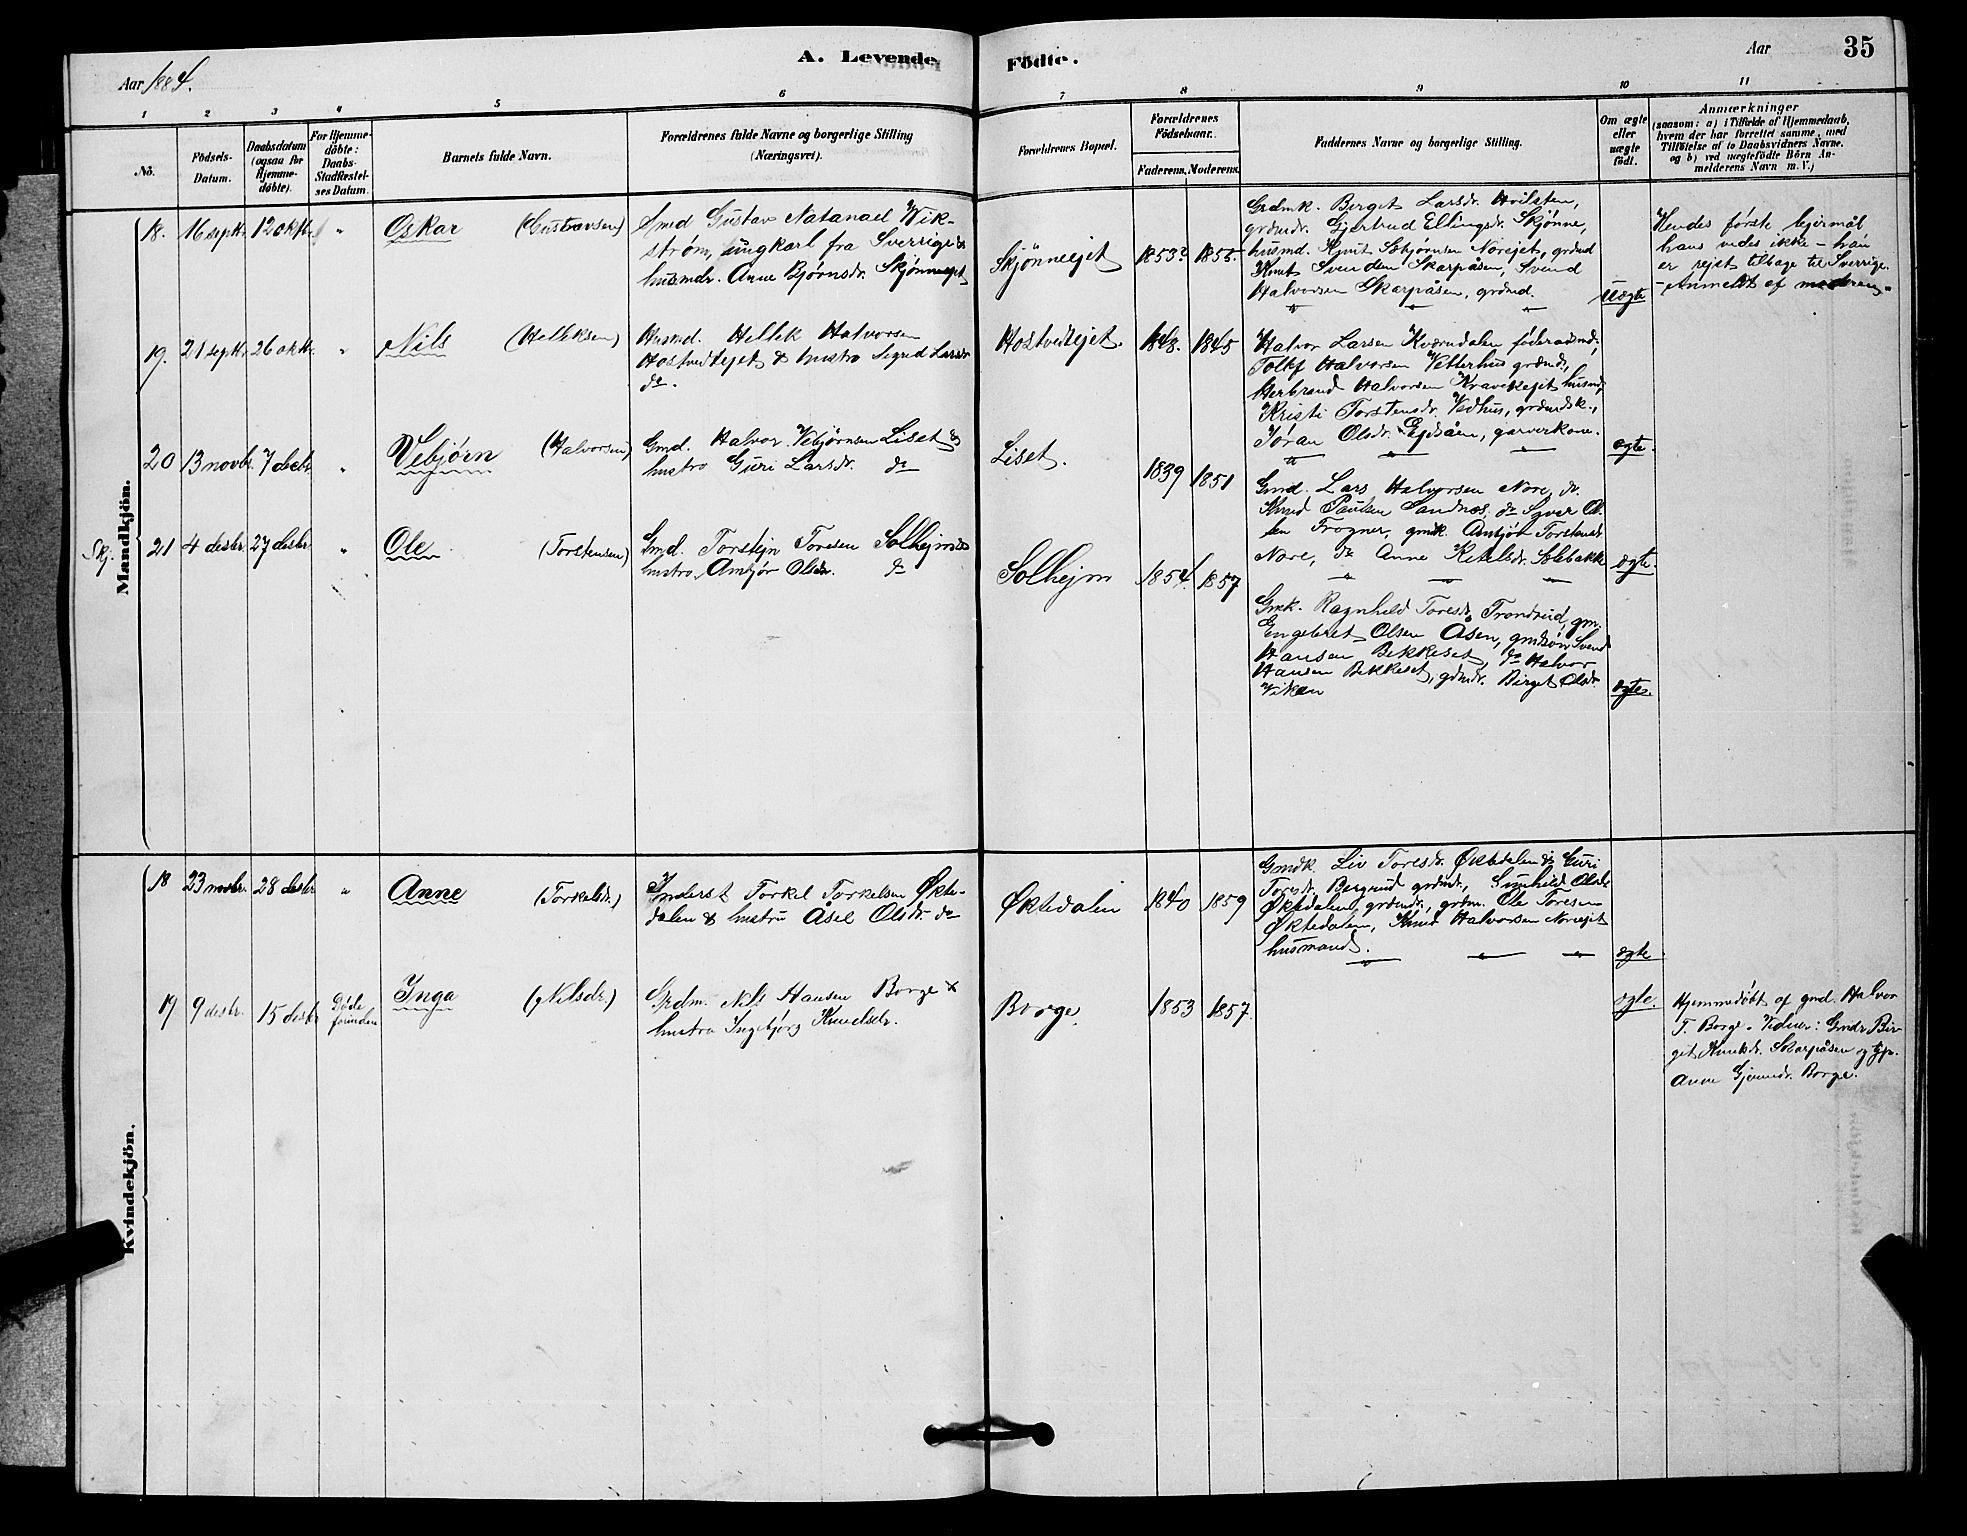 A. Levende Födte.
Aar 1884.
Aar
35
1 2 3 4 5 6 7 8 9 10 11
No.
Födsels-
Datum.
Daabsdatum
(ogsaa for
Hjemme-
döbte).
For Hjemme-
döbte:
Daabs-
Stadfæstel-
ses Datum.
Barnets fulde Navn.
Forældrenes fulde Navne og borgerlige Stilling
(Næringsvei).
Forældrenes Bopæl.
Forældrenes
Födselsaar.
Faderens. Moderens.
Faddernes Navne og borgerlige Stilling.
Om ægte
eller
uægte
födt.
Anmærkninger
(saasom: a) i Tilfælde af Hjemmedaab,
hvem der har forrettet samme, med
Tilföielse af to Daabsvidners Navne,
og b) ved uægtefödte Börn An-
melderens Navn m. V.)
Mandkjön.
18. 16 septb. 12 oktb. " Oskar (Gustavsen)
Smd Gustav Natanael Wik-
strøm, ungkarl fra Sverrige &
husmdr. Anne Bjørnsdr. Skjønneejet
Skjønneejet 1853? 1855.
Grdmk. Berget Larsdr. Hvilsten,
grdmdr. Gjertrud Ellingsdr. Skjønne,
husmd. Knut Norejet, grdmd
Knut Svendsen Skarpåsen, Svend
Halvorsen Skarpåsen, grdmd.
Uægte
Hendes første lejermål
hans vides ikke – han
er rejst tilbage til Sverrige.
– Anmeldt af moderen –
19. 21 septb. 26 oktb. " Nils (Helleksen)
Husmd. Hellek Halvorsen
Hostvedtejet & hustro Sigrid Larsdr
do.
Hostvedtejet. 1848. 1845
Halvor Larsen Kværndalen føderaadsmd.,
Tollef Halvorsen Vetterhus grdmds.,
Herbrand Halvorsen Kravikejet husmd,
Kristi Torstensdr. Vedhus, grdmdsk.,
Jøran Olsdr. Ejdsåen, garverkone.
ægte.
20 13 novbr. 7 desbr. " Vebjørn (Halvorsen)
Gmd. Halvor Vebjørnsen Liset &
hustro Guri Larsdr. do
Liset. 1839 1851
Gmd. Lars Halvorsen Nore, do.
Knud Paulsen Sandnes, do Syver Ol-
sen Frogner, gmk. Ambjør Torstensdr
Nore, do Anne Ketelsdr. Solebakke
ægte.
Skj.
21 4 desbr. 27 desbr. " Ole (Torstensen)
Gmd. Torstejn Torsen Solhejm &
hustro Ambjør Olsdr. do
Solhejm 1854. 1857
Gmk. Ragnhild Toresdr. Trondrud, gm.
Engebret Olsen Åsen, gmdsøn Svend
Hansen Bekkeset, do Halvor
Hansen Bekkeset, gdmdr. Birget Olsdr.
Viken
ægte.
Kvindekjön.
18 23 novbr. 28 desbr " Anne (Torkelsdr.)
Inderst Torkel Torkelsen Økte-
dalen & hustru Åsel Olsdr. do
Øktedalen 1840 1859
Gmdk. Liv Toresdr. Øktedalen & Guri
Toresdr. Bergrud grdmdr., Gunhild Olsdr.
Øktedalen, grdmdr., grdm. Ole Toresen
Øktedalen, Knud Halvorsen Norejet
husmand.
ægte
19 9 desbr. 15 desbr Døde
forinden
Inga (Nilsdr.)
Grdm. Nils Hansen Borge &
hustro Ingebjørg Knudsdr.
Borge. 1853 1857.
ægte.
Hjemmedøbt af gmd. Halvor
T. Borge. Vidner: Gmdr Bir-
git Knutsdr. Skarpåsen og tjp.
Anne Gjermdr. Borge.